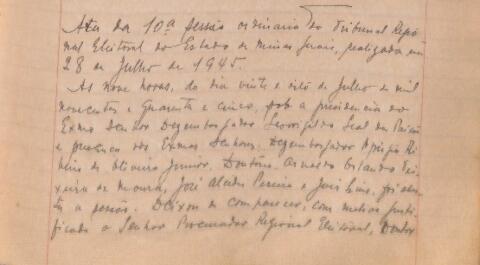 Ata da 10ª sessão ordinaria do Tribunal Regio
nal Eleitoral do Estado de Minas Gerais, realizada em
28 de Julho de 1945.
As nove horas, do dia vinte e oito de Julho de mil
novecentos e quarenta e cinco, sob a presidencia do
Exmo Senhor Dezembargador Leovigildo Leal da Paixão
e presença dos Exmos Senhores Dezembargador Aprigio Ri
beiro de Oliveira Junior, Doutores Orlando Tei
xeira de Moura, José Alcides Pereira e José Luis, foi aber
ta a sessão. Deixou de comparecer, com motivo justi
ficado o Senhor Procurador Regional Eleitoral, Doutor